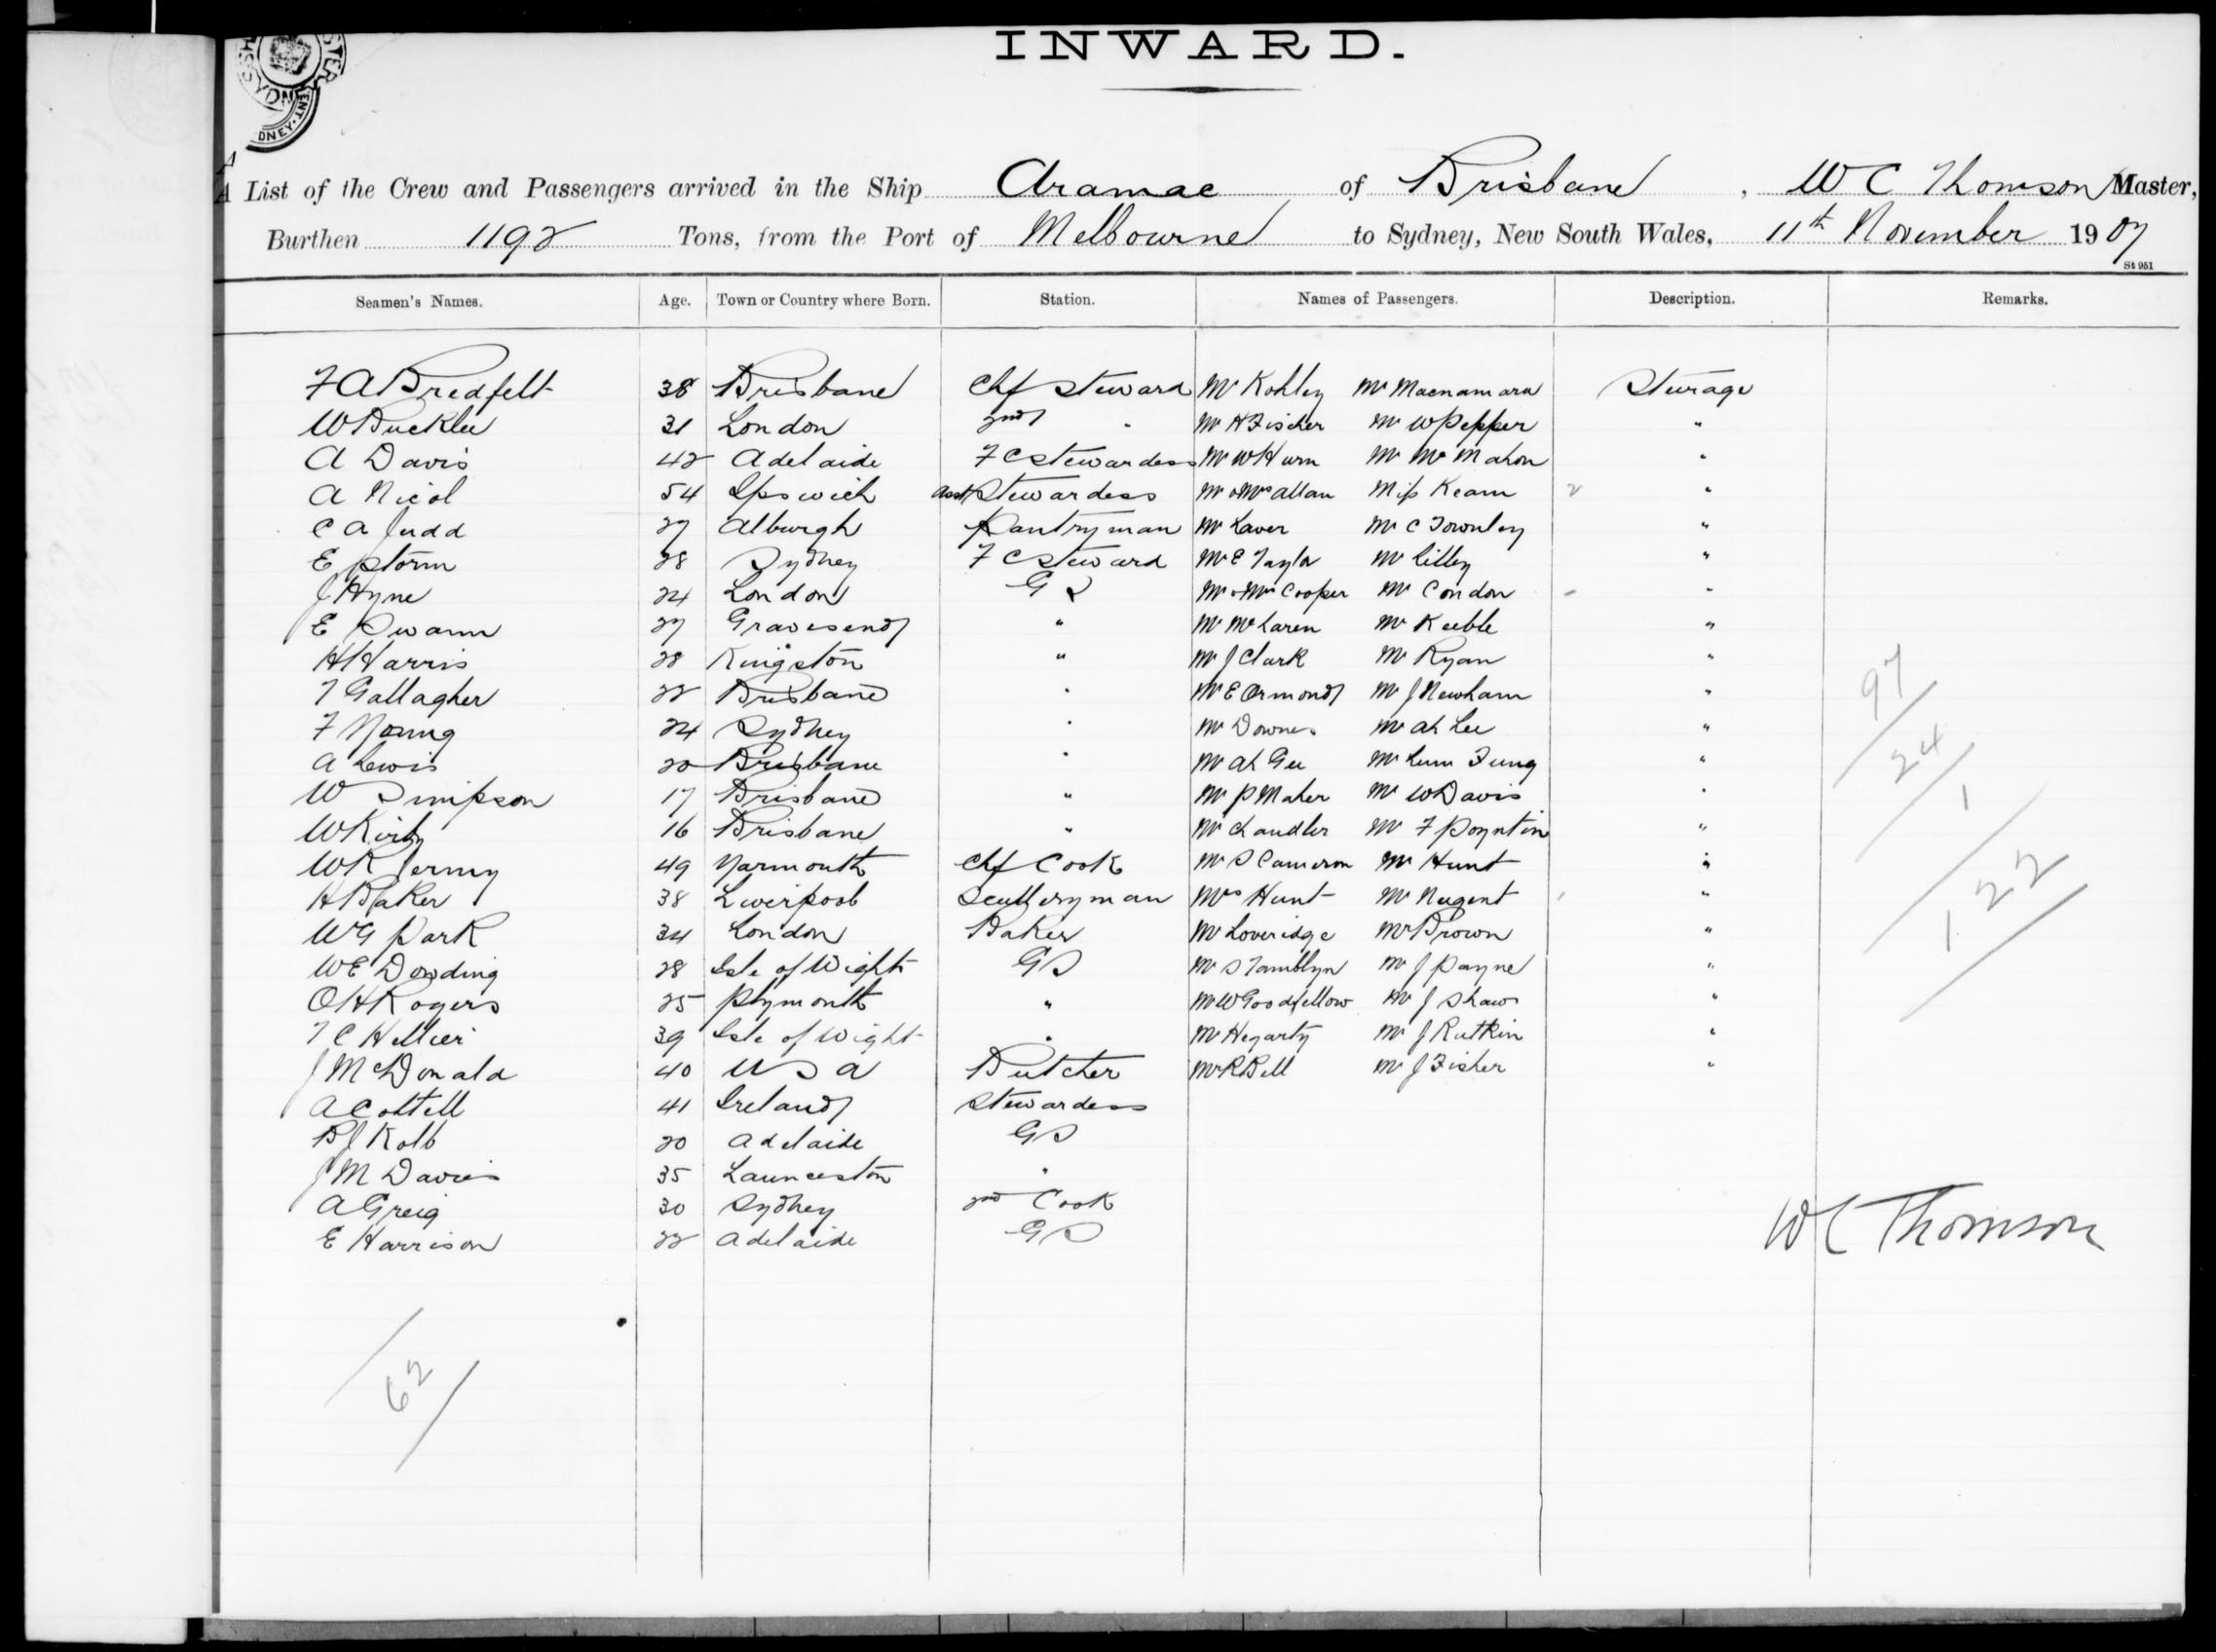 INWARD.
A List of the Crew and Passengers arrived in the Ship Aramac of Brisbane, W C Thomson Master,
Burthen 1192 Tons, from the Port of Melbourne to Sydney, New South Wales, 11th November 1907
St 951
Seamen's Names. Age. Town or Country where Born. Station. Names of Passengers. Description. Remarks.
F A Bredfelt 38 Brisbane Chf Steward Mr Kohley Mr Macnamara Sturage
W Bucklee 31 London 2nd " Mr H Fischer Mr W Pepper "
A Davis 42 Adelaide F C Stewardess Mr W Hurn Mr McMahon "
A Nicol 54 Ipswich Asst Stewardess Mr & Mrs Allan Miss Keam 2 "
C A Judd 27 Alburgh Pantryman Mr Laver Mr C Townley "
E Storm 28 Sydney F C Steward Mr E Taylor Mr Lilley "
J Hyne 24 London G S Mr & Mrs Cooper Mr Condon "
E Swann 27 Gravesend " Mr McLaren Mr Keeble "
H Harris 28 Kingston " Mr J Clark Mr Ryan "
T Gallagher 22 Brisbane " Mr E Ormond Mr J Newham "
F Young 24 Sydney " Mr Downes Mr Ah Lee "
A Lewis 20 Brisbane " Mr Ah Gee Mr Lum Fung "
W Simpson 17 Brisbane " Mr P Maher Mr W Davis "
W Kirby 16 Brisbane " Mr Chandler Mr F Poyntin "
W R Jermy 49 Yarmouth Chf Cook Mr S Cameron Mr Hunt "
H Baker 38 Liverpool Sculleryman Mrs Hunt Mr Nugent "
W G Park 34 London Baker Mr Loveridge Mr Brown "
W E Dowding 28 Isle of Wight G S Mr S Tamblyn Mr J Payne "
O H Rogers 25 Plymouth " Mr W Goodfellow Mr J Shaw "
T C Hellier 39 Isle of Wight " Mr Hegarty Mr J Rutkin "
J McDonald 40 U S A Butcher Mr R Bell Mr J Fisher "
A Cottell 41 Ireland Stewardess
B J Kolb 20 Adelaide G S
J M Davies 35 Launceston "
A Greig 30 Sydney 2nd Cook
E Harrison 22 Adelaide G S
97
24
1
122
W C Thomson
62